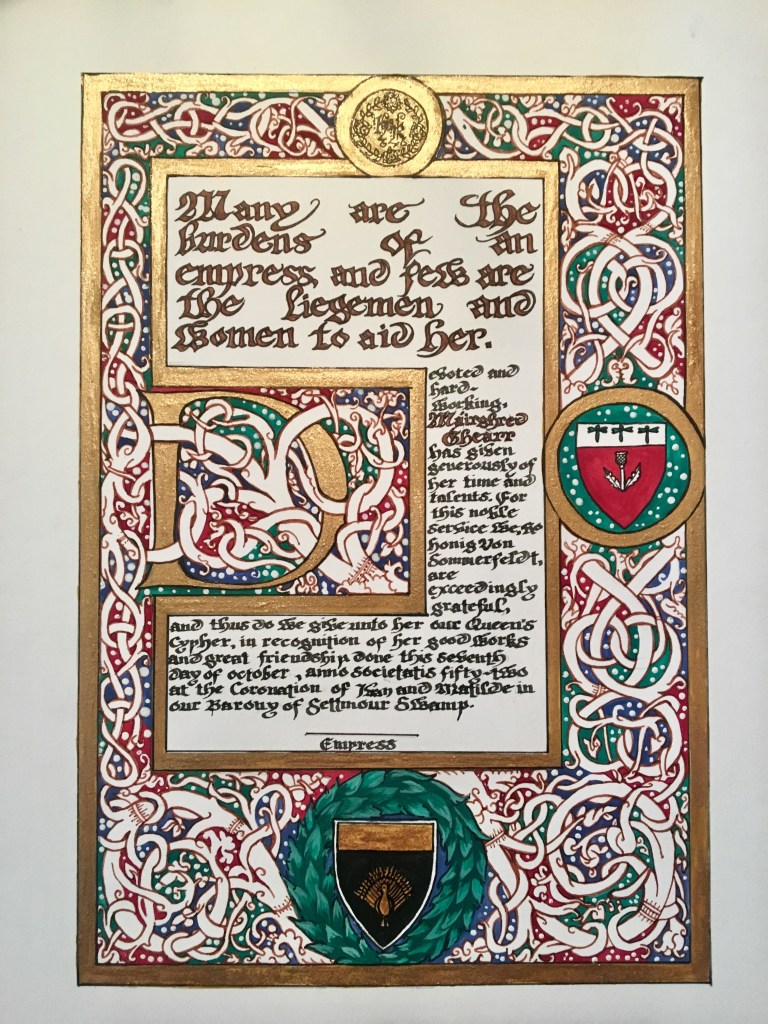 Many are the
burdens of an
empress, and few are
the liegemen and
women to aid her.
Devoted and
hard-
working,
Mairghred
Ghearr
has given
generously of
her time and
talents. For
this noble
service we,
Honig Von
Sommerfeldt,
are
exceedingly
grateful,
and thus do we give unto her our Queen's
Cypher, in recognition of her good works
and great friendship. done this seventh
day of october, anno societatis fifty-two
at the Coronation of Ivan and Matilde in
our Barony of Settmour Swamp.
Empress